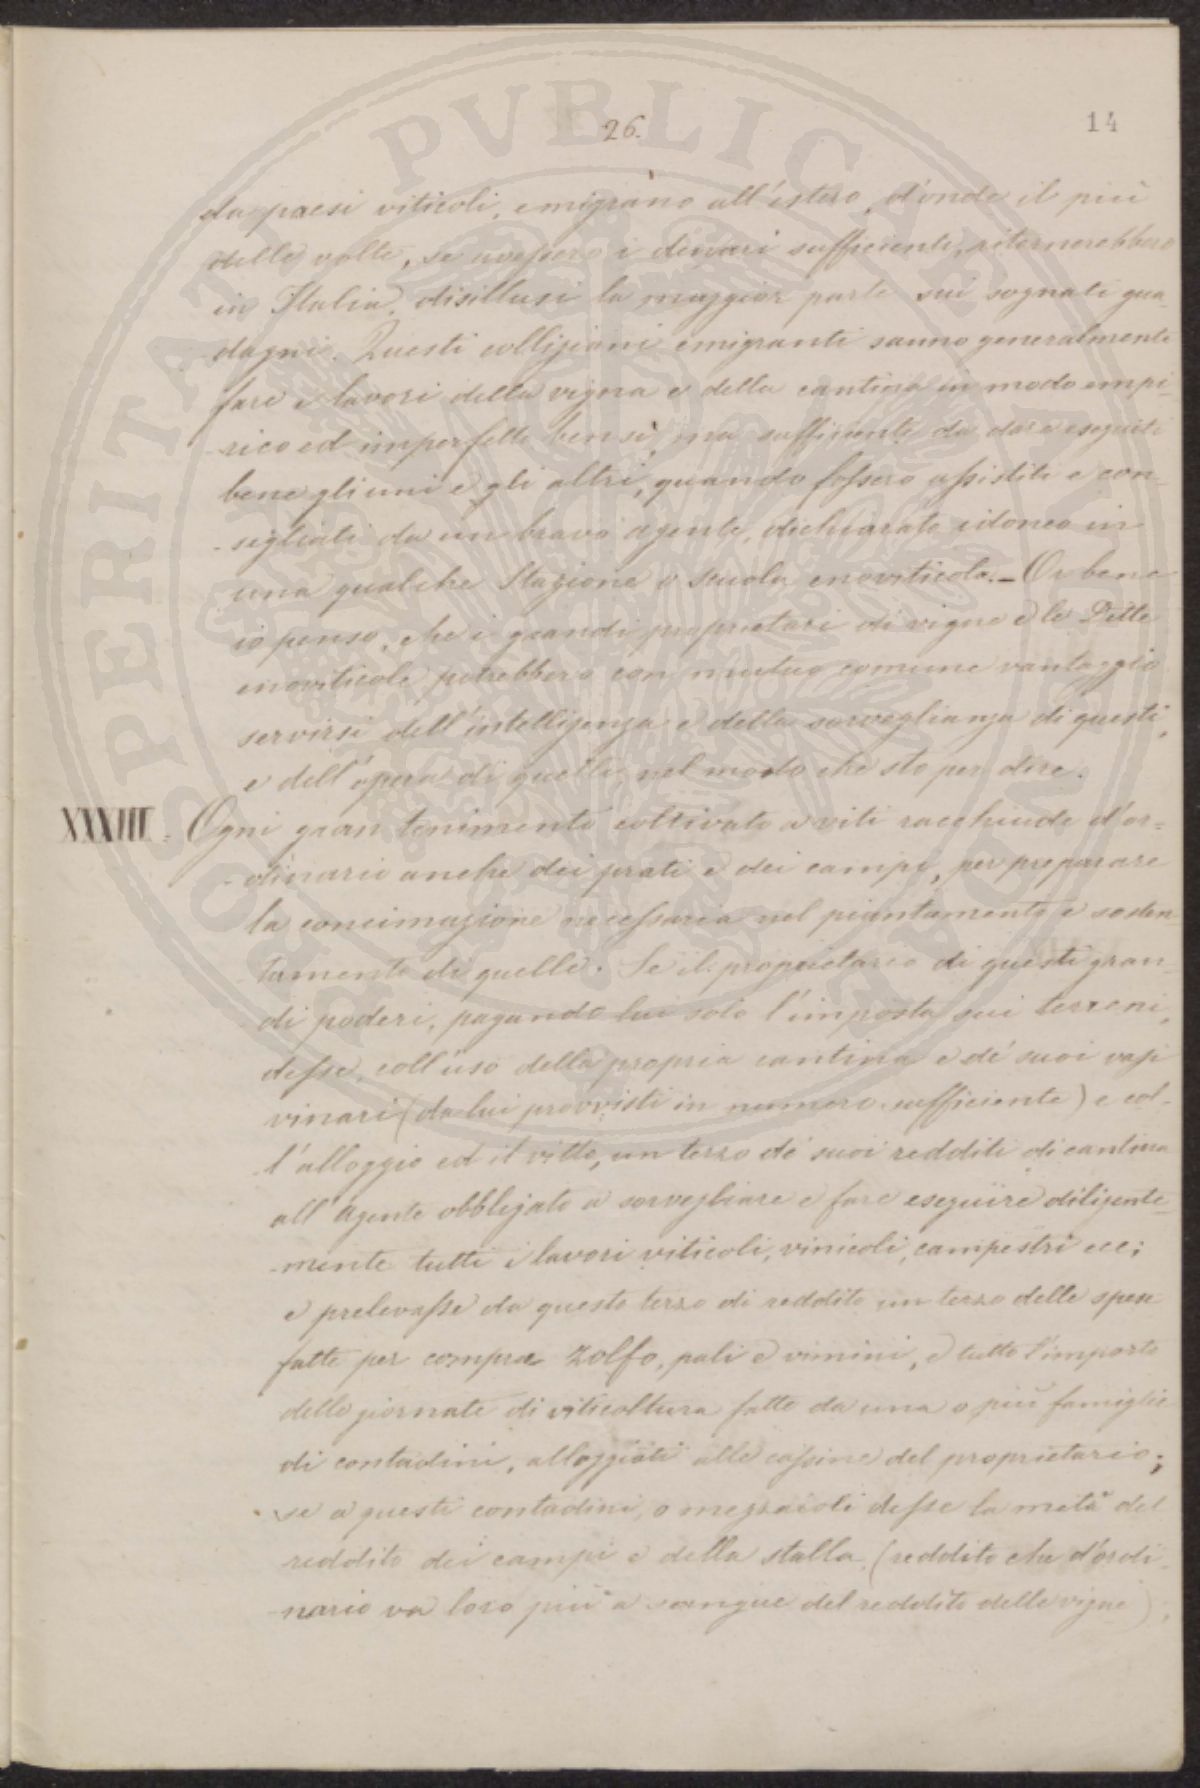 26.
14
da paesi viticoli, emigrano all'estero, d'onde il più
delle volte, se avessero i denari sufficienti, ritornerebbero
in Italia, disillusi la maggior parte sui sognati gua-
dagni. Questi colligiani emigranti sanno generalmente
fare i lavori della vigna e della cantina in modo empi-
rico ed imperfetto bensì, ma sufficiente da dare eseguiti
bene gli uni e gli altri, quando fossero assistiti e con-
sigliati da un bravo agente, dichiarato idoneo in
una qualche Stazione o scuola enoviticola. - Or bene
io penso, che i grandi proprietari di vigne e le Ditte
enoviticole potrebbero con mutuo comune vantaggio
servirsi dell'intelligenza e della sorveglianza di questi,
e dell'opera di quelli, nel modo che sto per dire.
XXXIII. Ogni gran tenimento coltivato a viti racchiude d'or=
dinario anche dei prati e dei campi, per preparare
la concimazione necessaria nel piantamento e sosten-
tamento di quelle. Se il proprietario di questi gran-
di poderi, pagando lui solo l'imposta sui terreni,
desse, coll'uso della propria cantina e de' suoi vasi
vinari (da lui provvisti in numero sufficiente) e col-
l'alloggio ed il vitto, un terzo de' suoi redditi di cantina
all'Agente obbligato a sorvegliare e fare eseguire diligente-
mente tutti i lavori viticoli, vinicoli, campestri ecc;
e prelevasse da questo terzo di reddito un terzo delle spese
fatte per compra zolfo, pali e vimini, e tutto l'importo
delle giornate di viticoltura fatte da una o più famiglie
di contadini, alloggiati alle cassine del proprietario;
se a questi contadini, o mezzaioli desse la metà del
reddito dei campi e della stalla (reddito che d'ordi-
nario va loro più a sangue del reddito delle vigne);
PROSPERITATI PVBLICAE